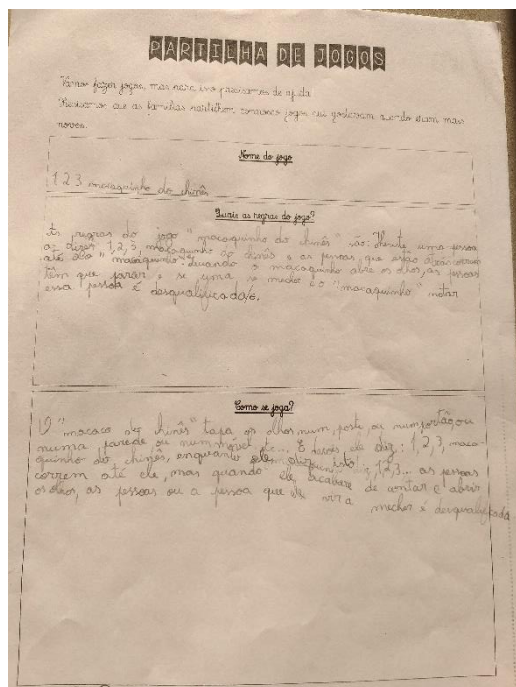 PARTILHA DE JOGOS
Vamos fazer jogos, mas para isso precisamos de ajuda.
Precisamos que as famílias partilhem connosco jogos que gostavam quando eram mais
novos.
Nome do jogo
1 2 3 macaquinho do chinês
Quais as regras do jogo?
As regras do jogo "macaquinho do chinês" são: uma pessoa
ao dizer 1, 2, 3, macaquinho do chinês e as pessoas que estão atrás correm
até ao "macaquinho". Quando o macaquinho abre os olhos, as pessoas
têm que parar, e se uma se mecher e o "macaquinho" notar
essa pessoa é desqualificada/o.
Como se joga?
O "macaco do chinês" tapa os olhos num poste, ou num portão, ou
numa parede ou num móvel etc... E depois ele diz: 1, 2, 3, maca-
quinho do chinês, enquanto ele diz isto 1, 2, 3... as pessoas
correm até ele, mas quando ele acabar de contar e abrir
os olhos, as pessoas ou a pessoa que ele vir a mecher é desqualificada